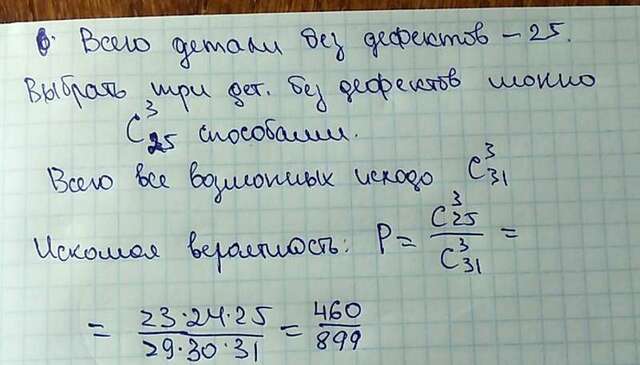 Всего детали без дефектов – 25.
Выбрать три дет. без дефектов можно
C₂₅³ способами.
Всего все возможных исходо C₃₁³
Искомая вероятность: P = C₂₅³ / C₃₁³ =
= 23·24·25 / 29·30·31 = 460 / 899